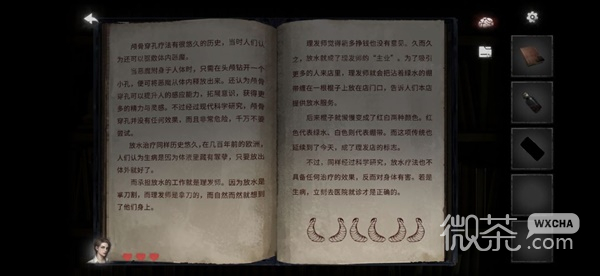 颅骨穿孔疗法有很悠久的历史，当时人们认
为还可以驱散体内恶魔。
当恶魔附身于人体时，只需在头颅钻开一个
小孔，便可将恶魔从体内释放出来。还认为颅骨
穿孔可以提升人的感应能力，拓展意识，获得更
多的精力与灵感。不过经过现代科学研究，颅骨
穿孔并没有任何效果，而且非常危险，千万不要
尝试。
放水疗法同样历史悠久，在几百年前的欧洲，
人们认为生病是因为体液里藏有
体外就好了。
而承担放水的工作就是理发师。因为放水是
拿刀割，而理发师是拿刀的，而自然而然就想到
了他们身上。
理发师觉得能多挣钱也没有意见。久而久
之，放水就成了理发店的“主业”。为了吸引
更多的人来店里，理发师就会把沾有绿水的绷
带缠在一根棍子上放在店门口，告诉人们本店
提供放水服务。
后来棍子就慢慢变成了红白两种颜色。红
色代表绿水，白色则代表绷带。而这项传统也
延续到了今天，成了理发店的标志。
不过，同样经过科学研究，放水疗法也不
具备任何治疗的效果，反而对身体有害。若是
生病，立刻去医院就诊才是正确的。
微茶
WXCHA
.com